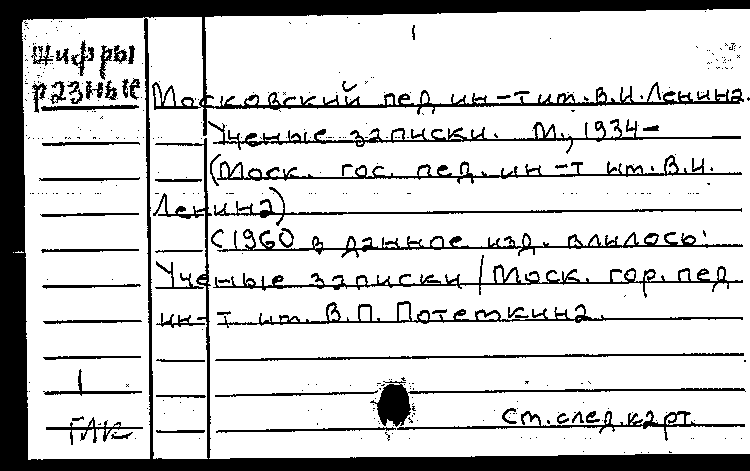 1
Шифры
разные
Московский пед. ин-т им. В.И. Ленина.
Ученые записки. М., 1934–
(Моск. гос. пед. ин-т им. В.И.
Ленина)
С 1960 в данное изд. влилось:
Ученые записки / Моск. гор. пед
ин-т им. В.П. Потемкина.
1
См. след. карт.